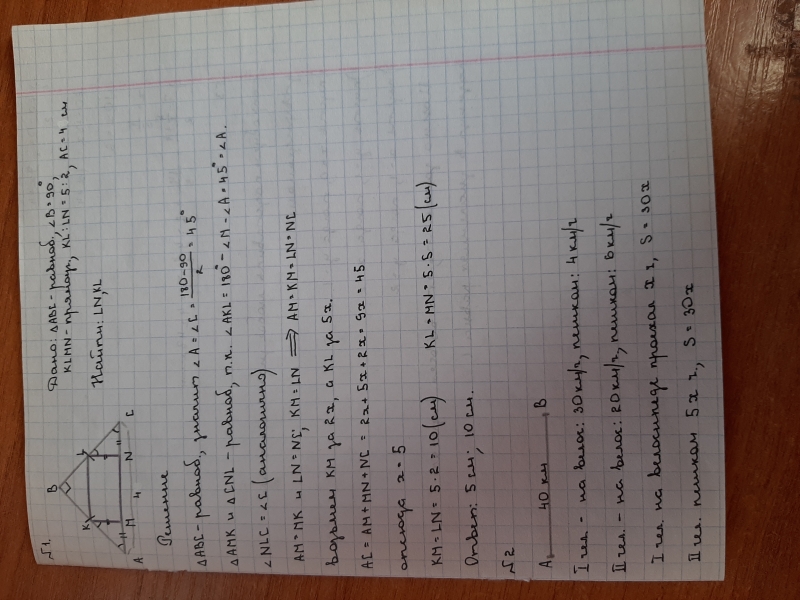 №1.
B
K
L
A
M
4
N
C
Дано: △ABC - равноб, ∠B = 90°,
KLMN - прямоуг, KL : LN = 5 : 2, AC = 4 см
Найти: LN, KL
Решение
△ABC - равноб, значит ∠A = ∠C = (180-90)/2 = 45°
△AMK и △CNL - равноб, т.к. ∠AKL = 180° - ∠M - ∠A = 45° = ∠A.
∠NLC = ∠C (аналогично)
AM = MK и LN = NC; KM = LN ⟹ AM = KM = LN = NC
возьмем KM за 2x, а KL за 5x.
AC = AM + MN + NC = 2x + 5x + 2x = 9x = 45
отсюда x = 5
KM = LN = 5 · 2 = 10 (см) KL = MN = 5 · 5 = 25 (см)
Ответ: 5 см; 10 см.
№2
A 40 км B
I чел. - на велос: 30 км/ч, пешком: 4 км/ч
II чел. - на велос: 20 км/ч, пешком: 6 км/ч
I чел на велосипеде проехал x ч, S = 30x
II чел. пешком 5x ч, S = 30x